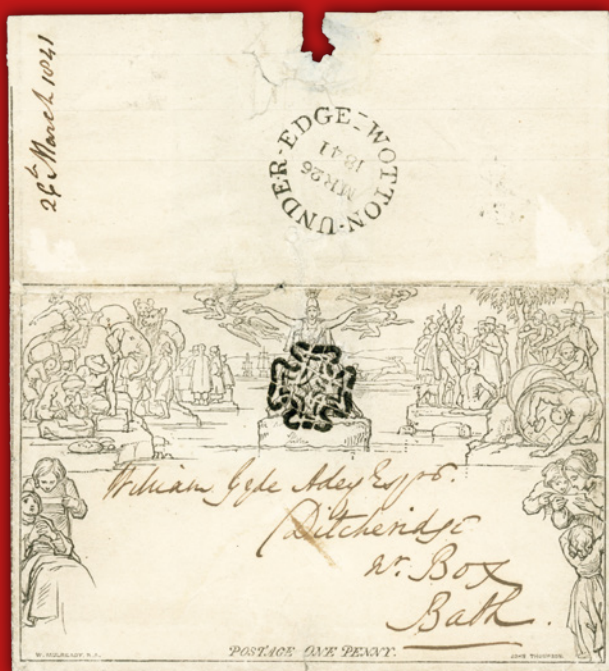 26th March 1841
WOTTON-UNDER-EDGE
MR 26
1841
William Gyde Adey Esqre.
Ditcheridge
nr. Box
Bath.
W. MULREADY, R.A.
POSTAGE ONE PENNY.
JOHN THOMPSON